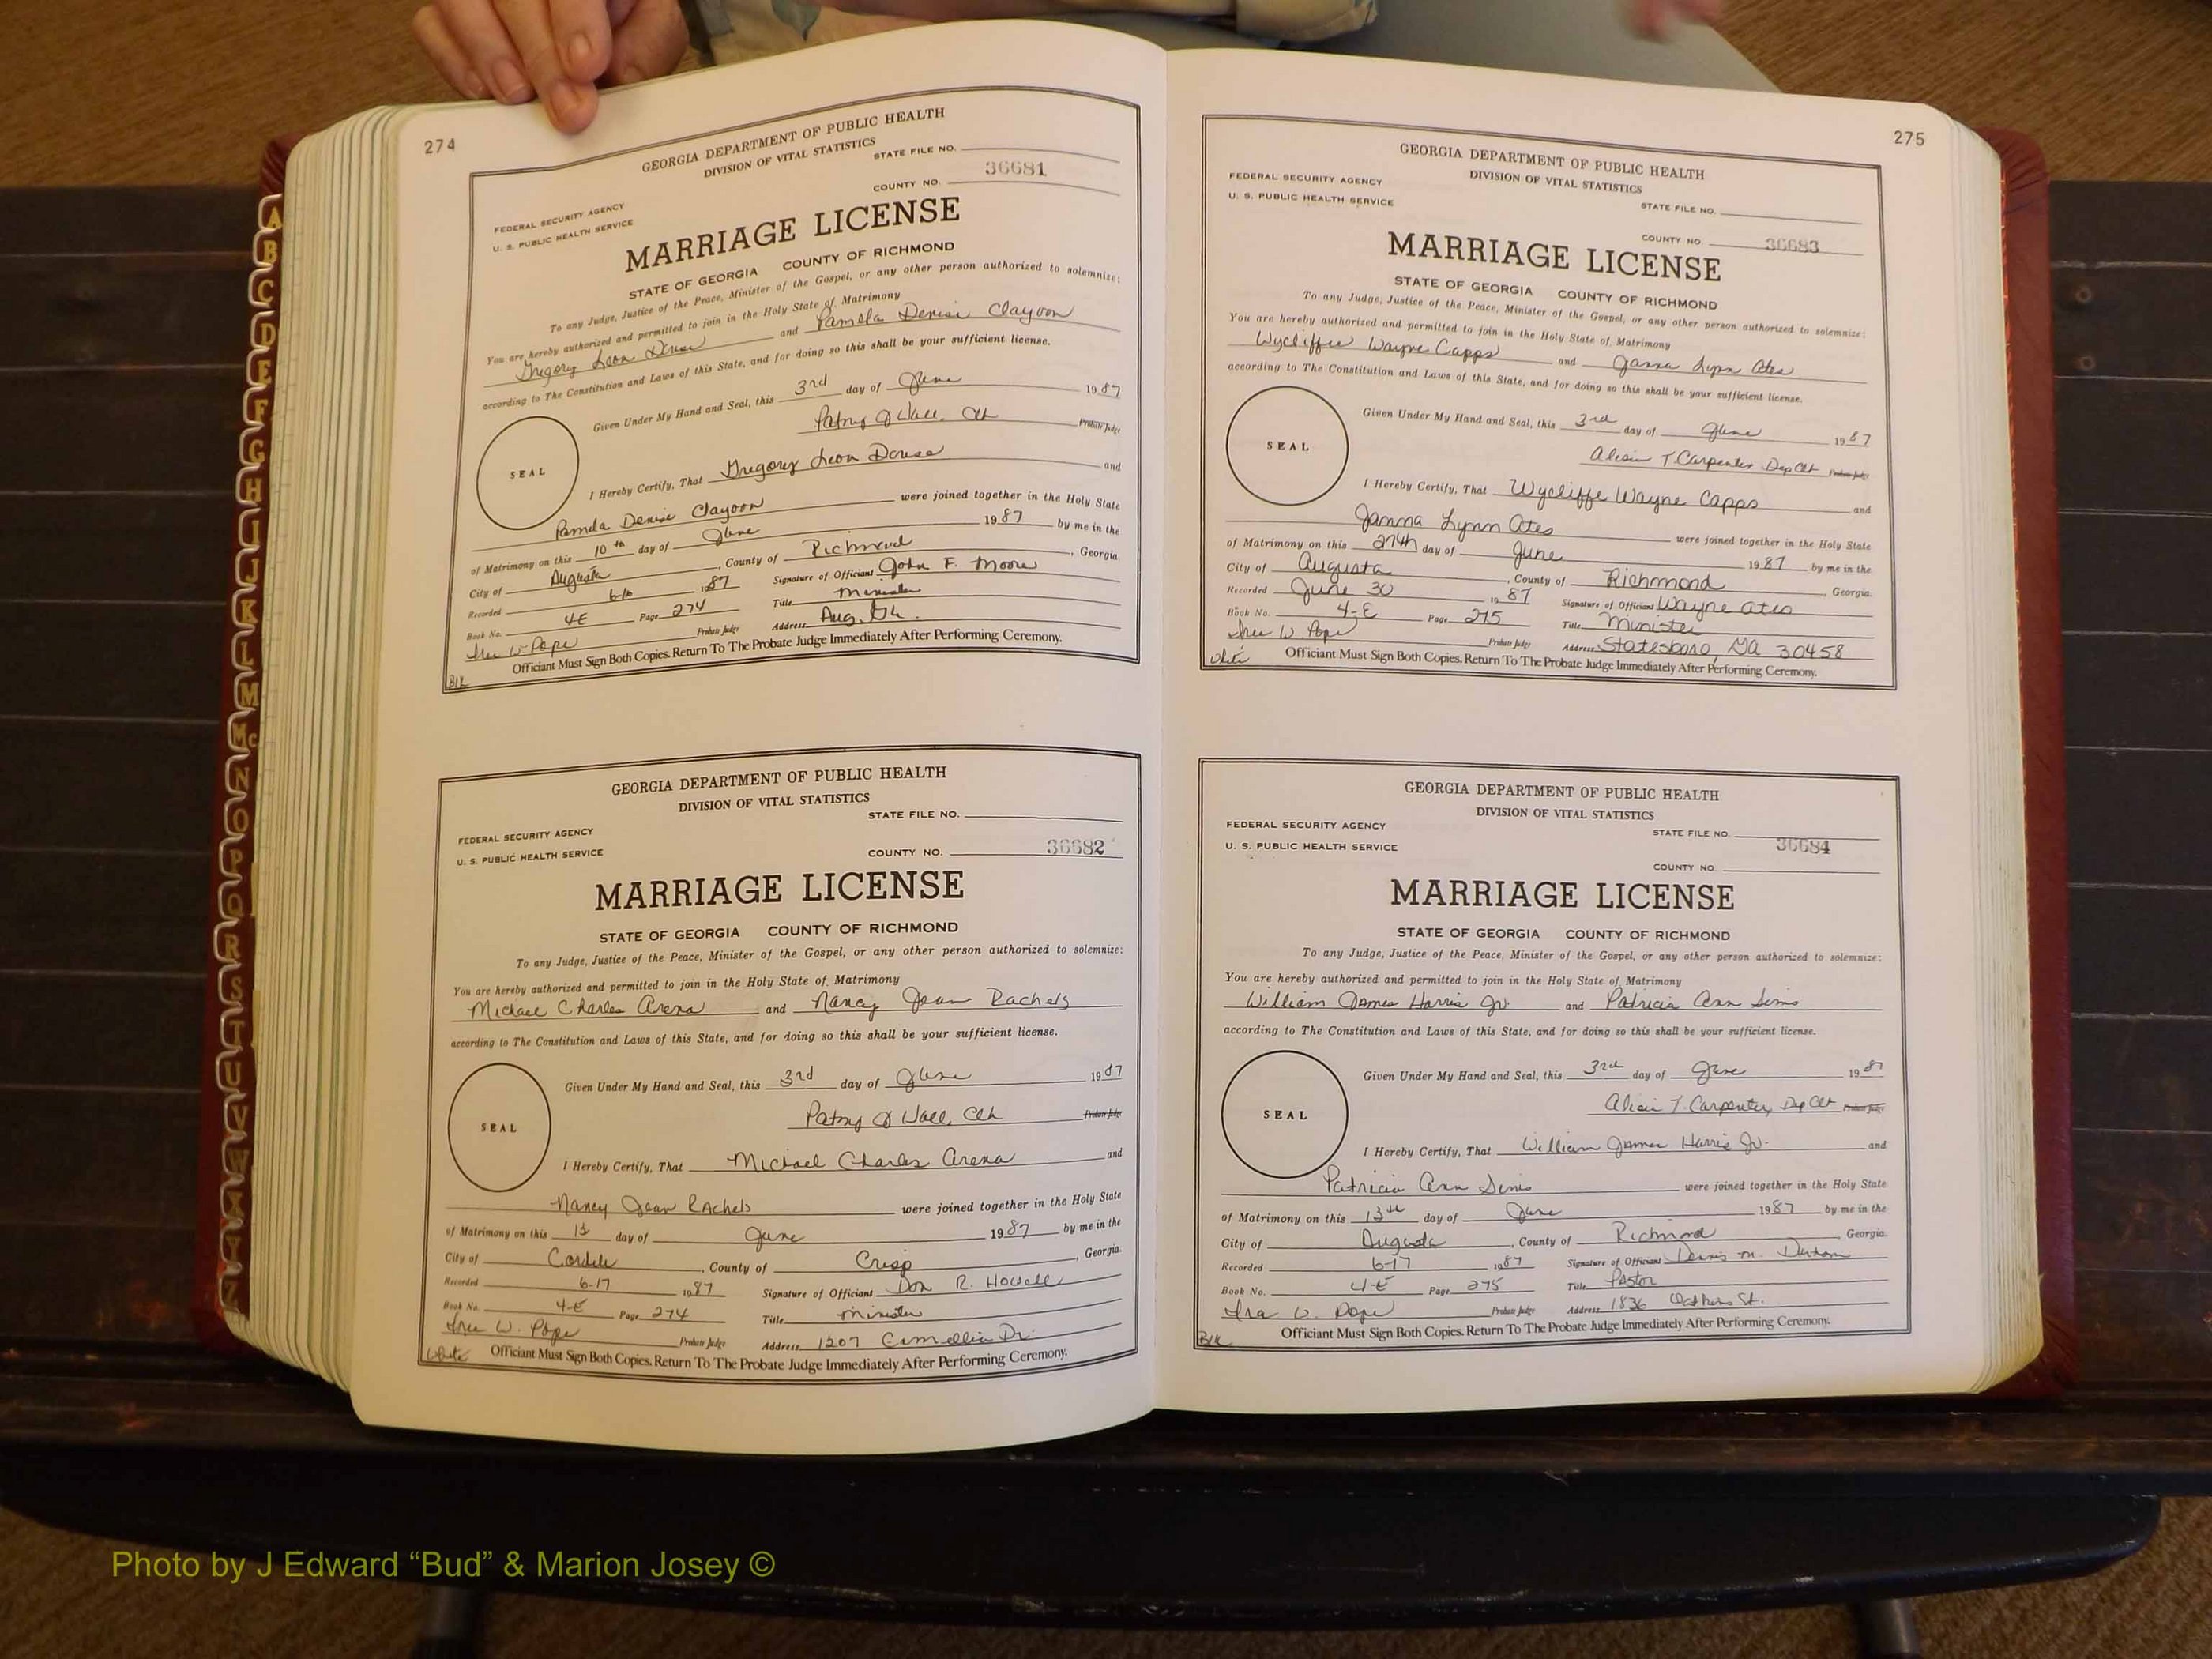 274
GEORGIA DEPARTMENT OF PUBLIC HEALTH
DIVISION OF VITAL STATISTICS
STATE FILE NO.
36681
COUNTY NO.
FEDERAL SECURITY AGENCY
U. S. PUBLIC HEALTH SERVICE
MARRIAGE LICENSE
STATE OF GEORGIA COUNTY OF RICHMOND
To any Judge, Justice of the Peace, Minister of the Gospel, or any other person authorized to solemnize:
You are hereby authorized and permitted to join in the Holy State of Matrimony
Gregory Leon and Pamela Denise Clayton
according to The Constitution and Laws of this State, and for doing so this shall be your sufficient license.
Given Under My Hand and Seal, this 3rd day of June 1987
Wall, Clk Probate Judge
SEAL
I Hereby Certify, That Gregory Leon and
Pamela Denise were joined together in the Holy State
of Matrimony on this 10th day of June 1987 by me in the
City of Augusta, County of Richmond, Georgia.
Recorded 6-10 1987 Signature of Officiant John F. Moore
Book No. 4-E Page 274 Title Minister
W. Pope Probate Judge Address Aug, Ga.
Officiant Must Sign Both Copies. Return To The Probate Judge Immediately After Performing Ceremony.
Blk
GEORGIA DEPARTMENT OF PUBLIC HEALTH
DIVISION OF VITAL STATISTICS
STATE FILE NO.
FEDERAL SECURITY AGENCY
U. S. PUBLIC HEALTH SERVICE
COUNTY NO. 36682
MARRIAGE LICENSE
STATE OF GEORGIA COUNTY OF RICHMOND
To any Judge, Justice of the Peace, Minister of the Gospel, or any other person authorized to solemnize:
You are hereby authorized and permitted to join in the Holy State of Matrimony
Michael Charles Arena and Nancy Jean Rachels
according to The Constitution and Laws of this State, and for doing so this shall be your sufficient license.
Given Under My Hand and Seal, this 3rd day of June 1987
Wall, Clk Probate Judge
SEAL
I Hereby Certify, That Michael Charles Arena and
Nancy Jean Rachels were joined together in the Holy State
of Matrimony on this 13 day of June 1987 by me in the
City of Cordele, County of Crisp, Georgia.
Recorded 6-17 1987 Signature of Officiant Don R. Howell
Book No. 4-E Page 274 Title Minister
W. Pope Probate Judge Address 1207 Camellia Dr.
White Officiant Must Sign Both Copies. Return To The Probate Judge Immediately After Performing Ceremony.
275
GEORGIA DEPARTMENT OF PUBLIC HEALTH
DIVISION OF VITAL STATISTICS
FEDERAL SECURITY AGENCY
U. S. PUBLIC HEALTH SERVICE
STATE FILE NO.
COUNTY NO. 36683
MARRIAGE LICENSE
STATE OF GEORGIA COUNTY OF RICHMOND
To any Judge, Justice of the Peace, Minister of the Gospel, or any other person authorized to solemnize:
You are hereby authorized and permitted to join in the Holy State of Matrimony
Wycliffe Wayne Capps and Janna Lynn Ates
according to The Constitution and Laws of this State, and for doing so this shall be your sufficient license.
Given Under My Hand and Seal, this 3rd day of June 1987
T. Carpenter Dep Clk Probate Judge
SEAL
I Hereby Certify, That Wycliffe Wayne Capps and
Janna Lynn Ates were joined together in the Holy State
of Matrimony on this 27th day of June 1987 by me in the
City of Augusta, County of Richmond Georgia.
Recorded June 30 1987 Signature of Officiant Wayne Ates
Book No. 4-E Page 275 Title Minister
W Pope Probate Judge Address Statesboro, Ga 30458
White Officiant Must Sign Both Copies. Return To The Probate Judge Immediately After Performing Ceremony.
GEORGIA DEPARTMENT OF PUBLIC HEALTH
DIVISION OF VITAL STATISTICS
FEDERAL SECURITY AGENCY
U. S. PUBLIC HEALTH SERVICE
STATE FILE NO.
36684
COUNTY NO.
MARRIAGE LICENSE
STATE OF GEORGIA COUNTY OF RICHMOND
To any Judge, Justice of the Peace, Minister of the Gospel, or any other person authorized to solemnize:
You are hereby authorized and permitted to join in the Holy State of Matrimony
William James Harris Jr. and Patricia Ann Sims
according to The Constitution and Laws of this State, and for doing so this shall be your sufficient license.
Given Under My Hand and Seal, this 3rd day of June 1987
T. Carpenter, Dep Clk Probate Judge
SEAL
I Hereby Certify, That William James Harris Jr. and
Patricia Ann Sims were joined together in the Holy State
of Matrimony on this 13th day of June 1987 by me in the
City of Augusta, County of Richmond, Georgia.
Recorded 6-17 1987 Signature of Officiant Dennis M. Durham
Book No. 4-E Page 275 Title Pastor
Ira W. Pope Probate Judge Address 1836 Watkins St.
Blk Officiant Must Sign Both Copies. Return To The Probate Judge Immediately After Performing Ceremony.
A
B
C
D
E
F
G
H
I
J
K
L
M
Mc
N
O
P
Q
R
S
T
U
V
W
X
Y
Z
Photo by J Edward “Bud” & Marion Josey ©